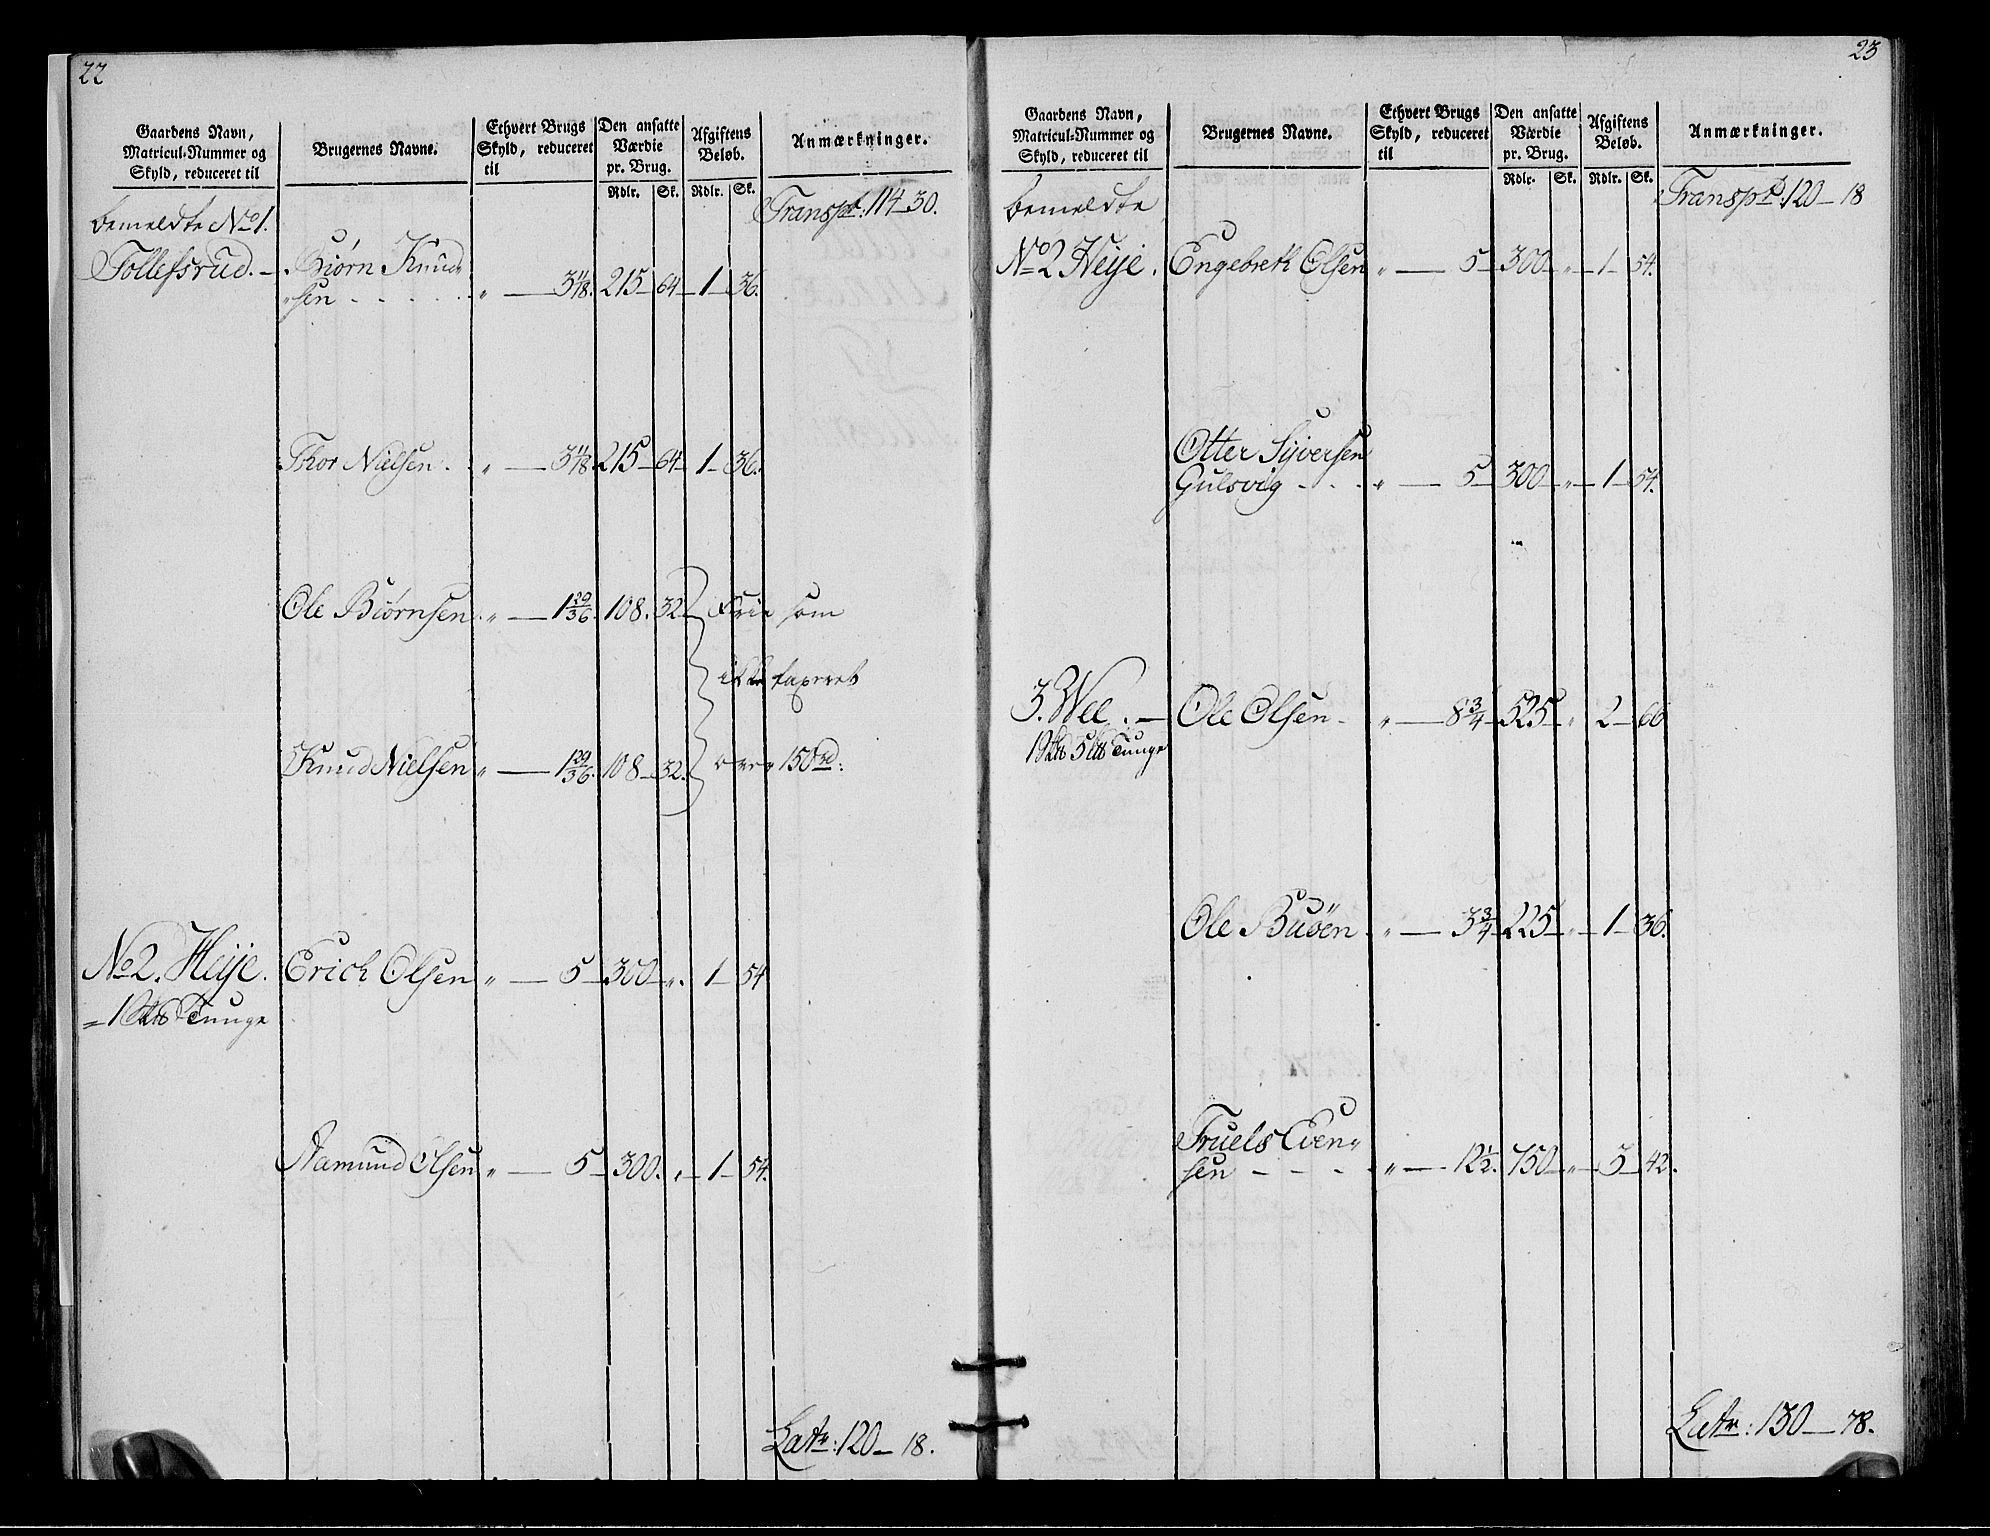 22
Gaardens Navn,
Matricul-Nummer og
Skyld, reduceret til
Brugernes Navne.
Ethvert Brugs
Skyld, reduceret
til
Den ansatte
Værdie
pr. Brug.
Rdlr. Sk.
Afgiftens
Beløb.
Rdlr. Sk.
Anmærkninger.
Transpt: 114-30.
bemeldte No 1.
Tollefsrud. - Biørn Knud-
sen - - - - " — 3 11/18. 215 - 64 - 1 - 36.
Thor Nielsen. " — 3 11/18. 215 - 64 - 1 - 36.
Ole Biørnsen. " — 1 29/36. 108. 32. Frie som
ikke taxeret
Knud Nielsen " — 1 29/36. 108 - 32. over 150 rd:
No 2. Heije. Erich Olsen " — 5 - 300 - ". 1 - 54
= 1 Tunge
Aamund Olsen " — 5 - 300. " - 1 - 54.
Latr: 120 - 18.
23
Gaardens Navn,
Matricul-Nummer og
Skyld, reduceret til
Brugernes Navne.
Ethvert Brugs
Skyld, reduceret
til
Den ansatte
Værdie
pr. Brug.
Rdlr. Sk.
Afgiftens
Beløb.
Rdlr. Sk.
Anmærkninger.
Transpt: 120 - 18
bemeldte
No 2 Heije. Engebreth Olsen " — 5 - 300 - " - 1 - 54.
Otter Syversen
Gulsvig - - - " — 5 - 300 - " - 1 - 54.
3. Wee. — Ole Olsen - " — 8 3/4 - 525 - " 2 - 66
1 5 Tunge
Ole Busöen. " — 3 3/4 - 225 - " - 1 - 36.
Truels Even-
sen - - - - " — 12 1/2. 750 - " - 3 - 42.
Latr: 130 - 78.